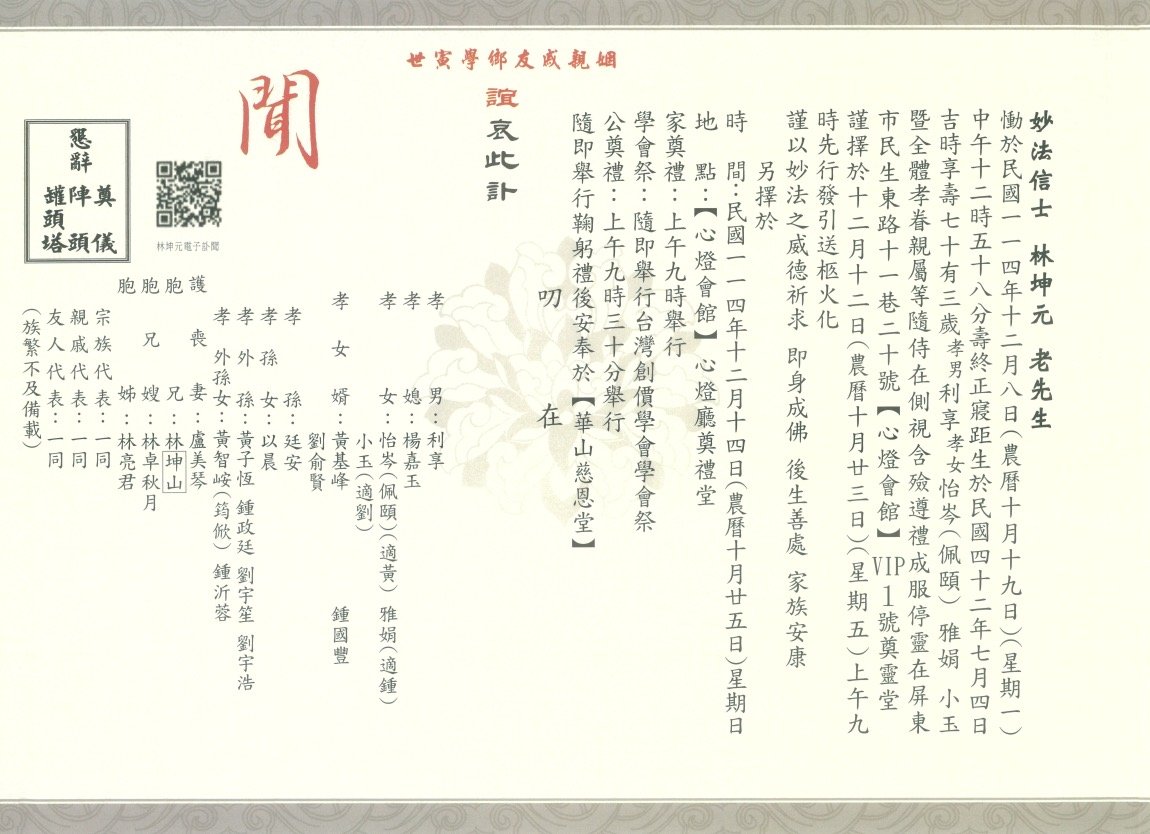 妙法信士 林坤元 老先生
慟於民國一一四年十二月八日(農曆十月十九日)(星期一)
中午十二時五十八分壽終正寢距生於民國四十二年七月四日
吉時享壽七十有三歲孝男利享孝女怡岑(佩頤) 雅娟 小玉
暨全體孝眷親屬等隨侍在側視含殮遵禮成服停靈在屏東
市民生東路十一巷二十號【心燈會館】VIP1號奠靈堂
謹擇於十二月十二日(農曆十月廿三日)(星期五)上午九
時先行發引送柩火化
謹以妙法之威德祈求 即身成佛 後生善處 家族安康
另擇於
時 間:民國一一四年十二月十四日(農曆十月廿五日)星期日
地 點:【心燈會館】心燈廳奠禮堂
家奠禮:上午九時舉行
學會祭:隨即舉行台灣創價學會學會祭
公奠禮:上午九時三十分舉行
隨即舉行鞠躬禮後安奉於【華山慈恩堂】
叨在
姻親戚友鄉學寅世
誼哀此訃
聞
孝 男:利享
孝 媳:楊嘉玉
孝 女:怡岑(佩頤)(適黃) 雅娟(適鍾)
小玉(適劉)
孝女婿:黃基峰 鍾國豐
劉俞賢
孝 孫 廷安
孝孫女:以晨
孝外孫:黃子恆 鍾政廷 劉宇笙 劉宇浩
孝外孫女:黃智峖(筠俽) 鍾沂蓉
護喪妻:盧美琴
胞 兄:林坤山
胞兄嫂:林卓秋月
胞 姊:林亮君
宗族代表:一同
親戚代表:一同
友人代表:一同
(族繁不及備載)
林坤元電子訃聞
懇辭
奠儀
陣頭
罐頭塔